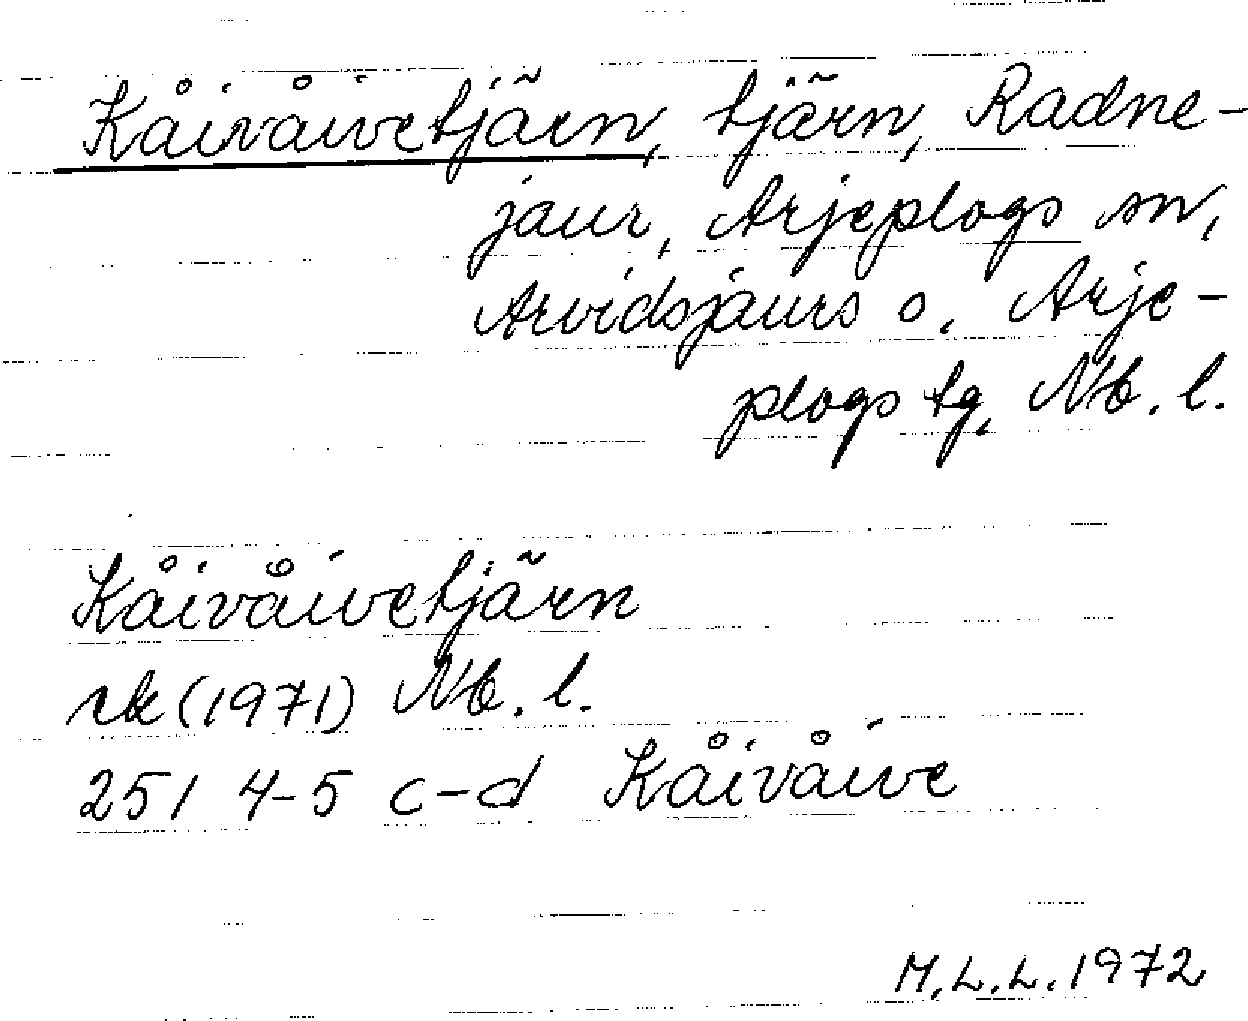 Kåivåivetjärn, tjärn, Radne-
jaur, Arjeplogs sn,
Arvidsjaurs o. Arje-
plogs tg, Nb. l.
Kåivåivetjärn
rk (1971) Nb. l.
251 4-5 c-d Kåivåive
M.L.L. 1972